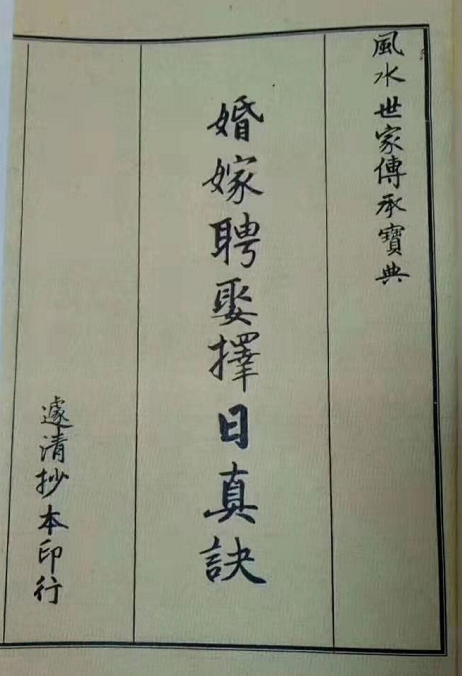 風水世家傳承寶典
婚嫁聘娶擇日真訣
遽清抄本印行